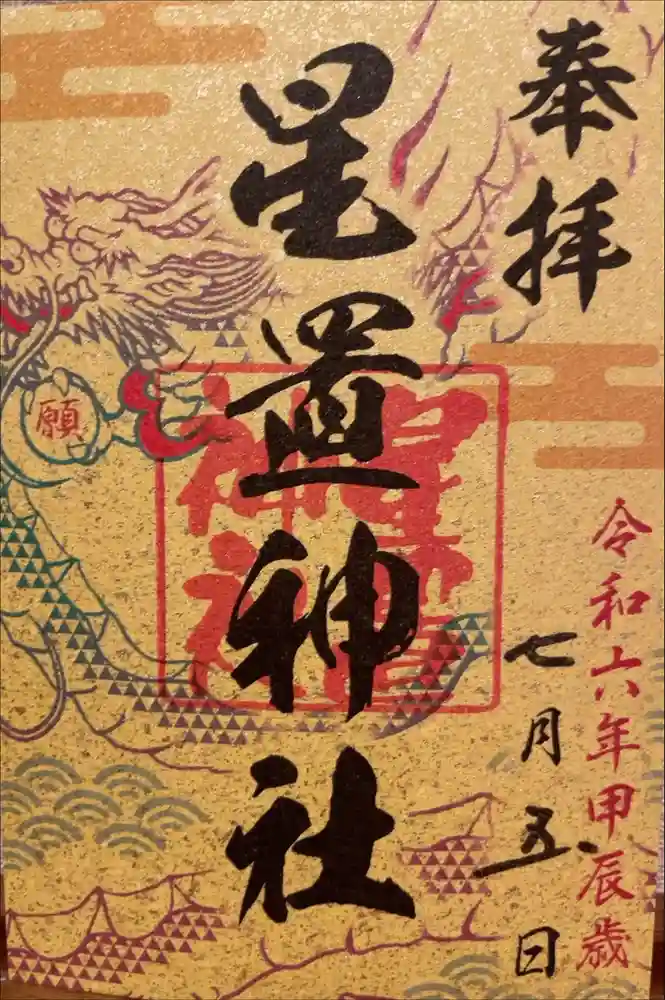 奉拝
令和六年甲辰歳
七月五日
星置神社
星置神社
願